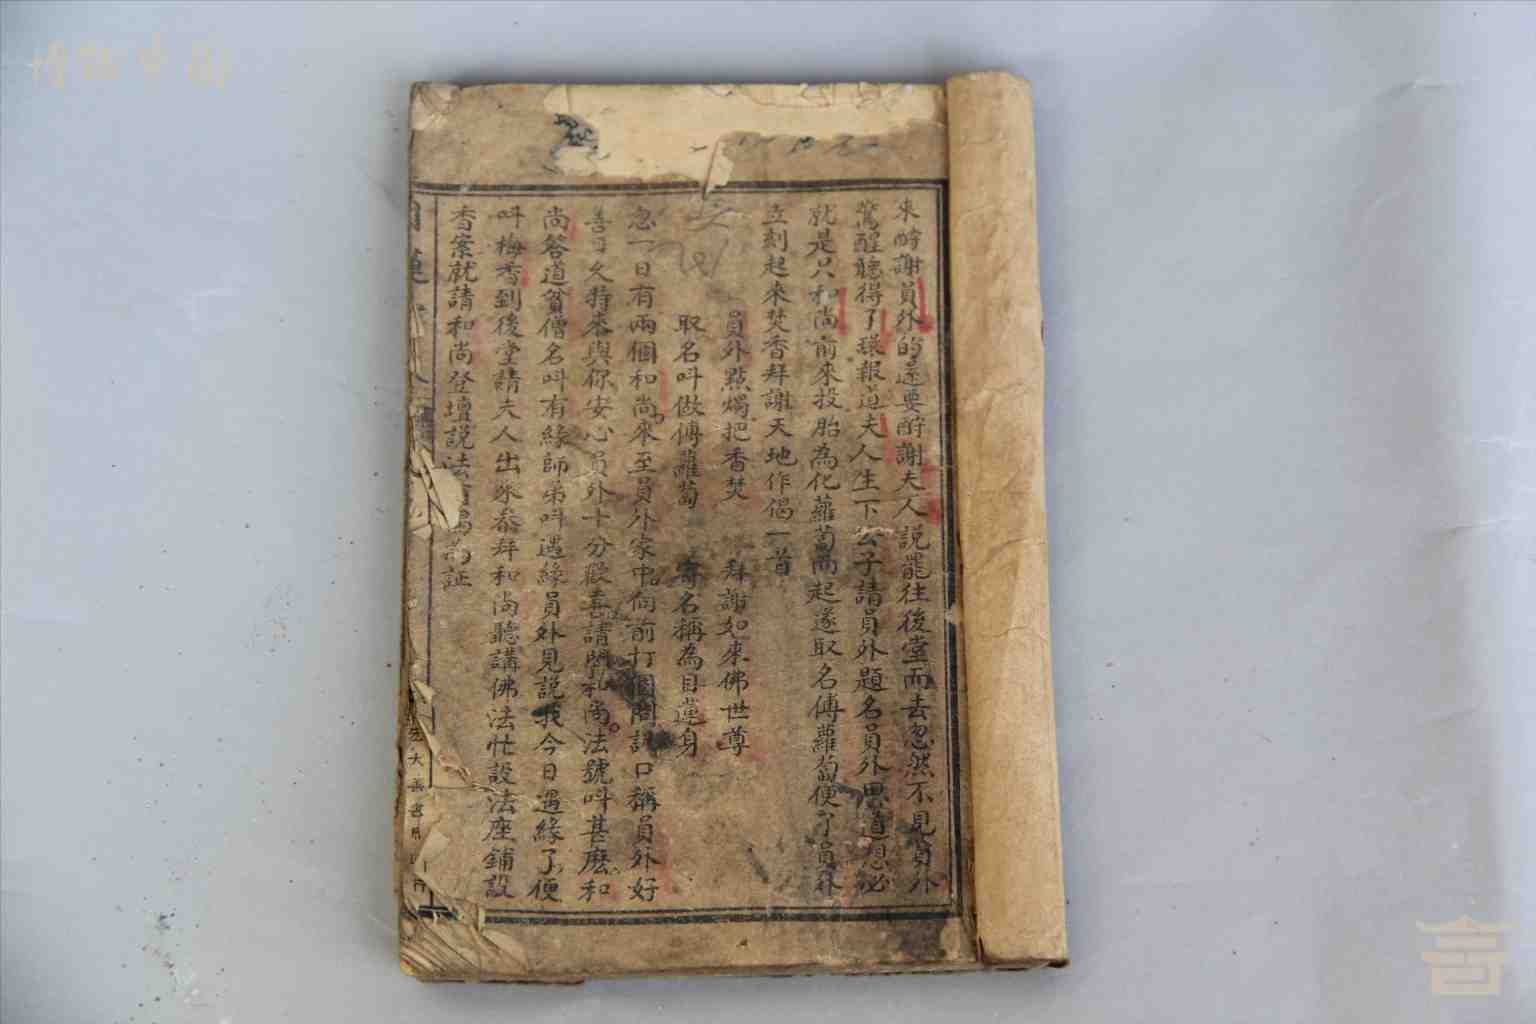 來酹謝員外的還要酹謝夫人說罷往後堂而去忽然不見員外
驚醒聽得了環報道夫人生下公子請員外題名員外思道想必
就是只和尚前來投胎為化蘿蔔而起遂取名傅蘿蔔便了員外
立刻起來焚香拜謝天地作偈一首
員外點燭把香焚 拜謝如來佛世尊
取名叫做傅蘿蔔 寄名稱為目蓮身
忽一日有兩個和尚來至員外家中向前打個問訊口稱員外好
善日久特來與你安心員外十分歡喜請問和尚法號叫甚麼和
尚答道貧僧名叫有緣師弟叫遇緣員外見說我今日遇緣了便
叫梅香到後堂請夫人出來叅拜和尚聽講佛法忙設法座鋪設
香案就請和尚登壇說法有偈為証
大善書局